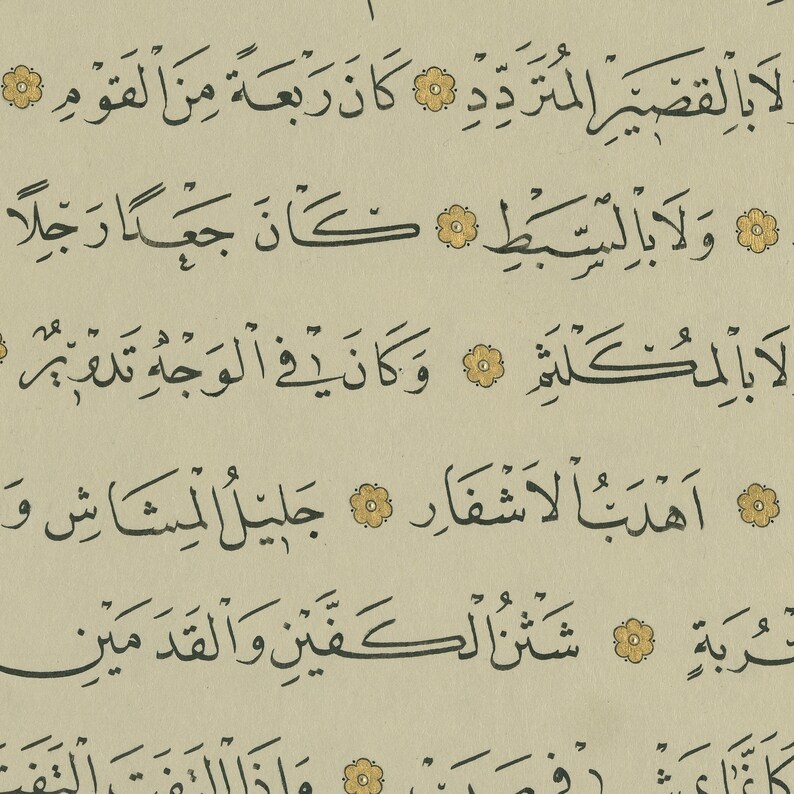 لَا بِالْقَصِيرِ الْمُتَرَدِّدِ كَانَ رَبْعَةً مِنَ الْقَوْمِ
وَلَا بِالسَّبْطِ كَانَ جَعْدًا رَجِلًا
لَا بِالْمُكَلْثَمِ وَكَانَ فِي الْوَجْهِ تَدْوِيرٌ
أَهْدَبُ الْأَشْفَارِ جَلِيلُ الْمُشَاشِ وَ
شَثْنُ الْكَفَّيْنِ وَالْقَدَمَيْنِ
وَإِذَا الْتَفَتَ الْتَفَتَ